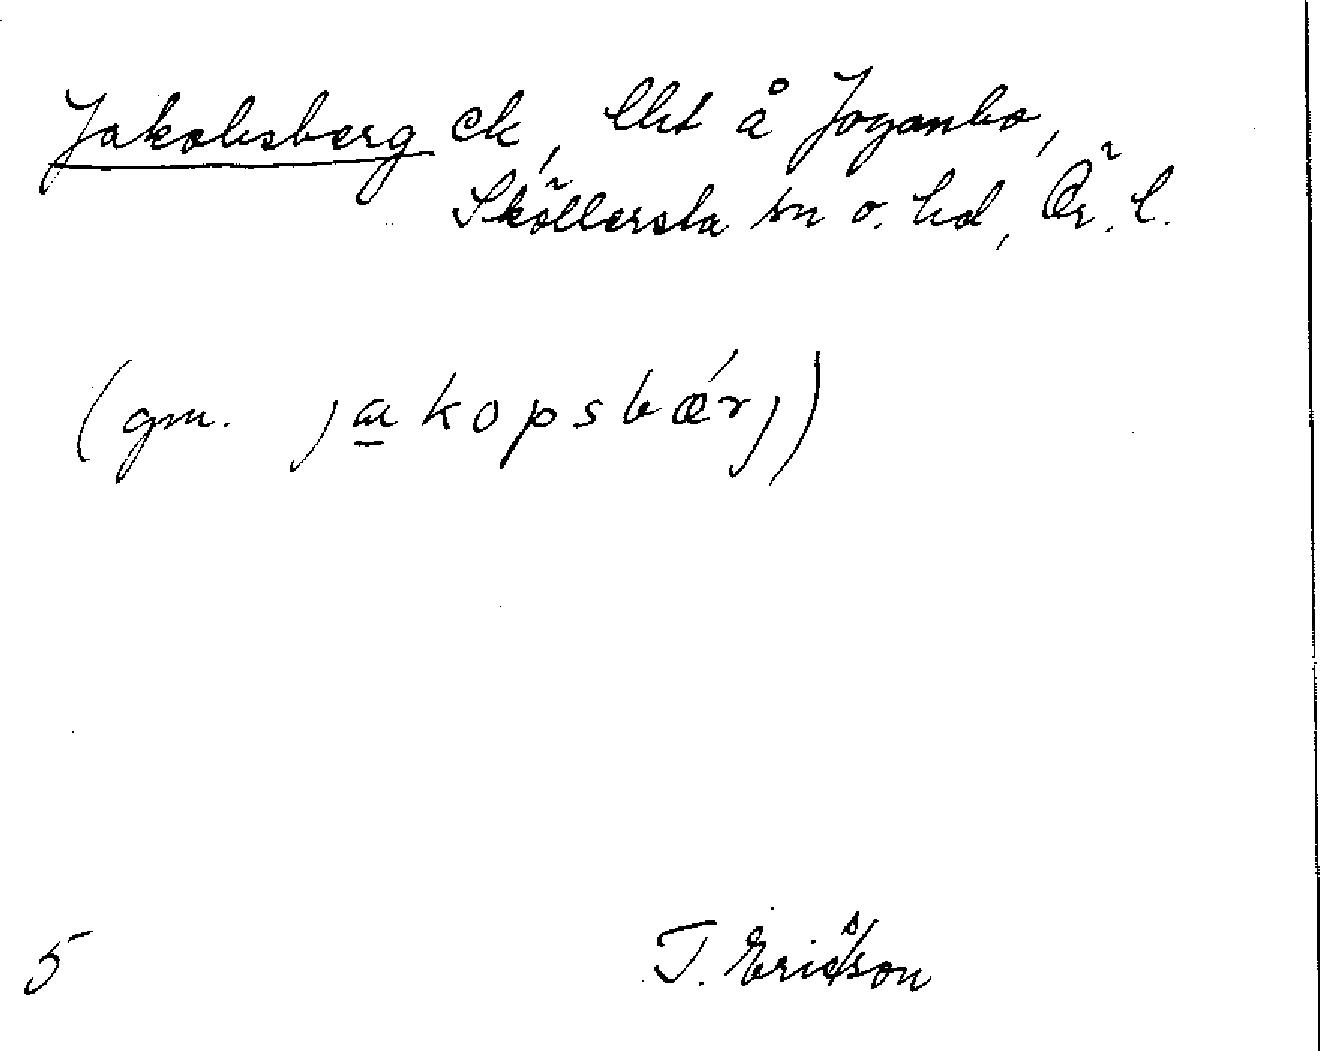 Jakobsberg ck, lht å Joganbo,
Sköllersta sn o. hd, Ör. l.
(gm. jakopsbǽrj)
5 T. Ericsson